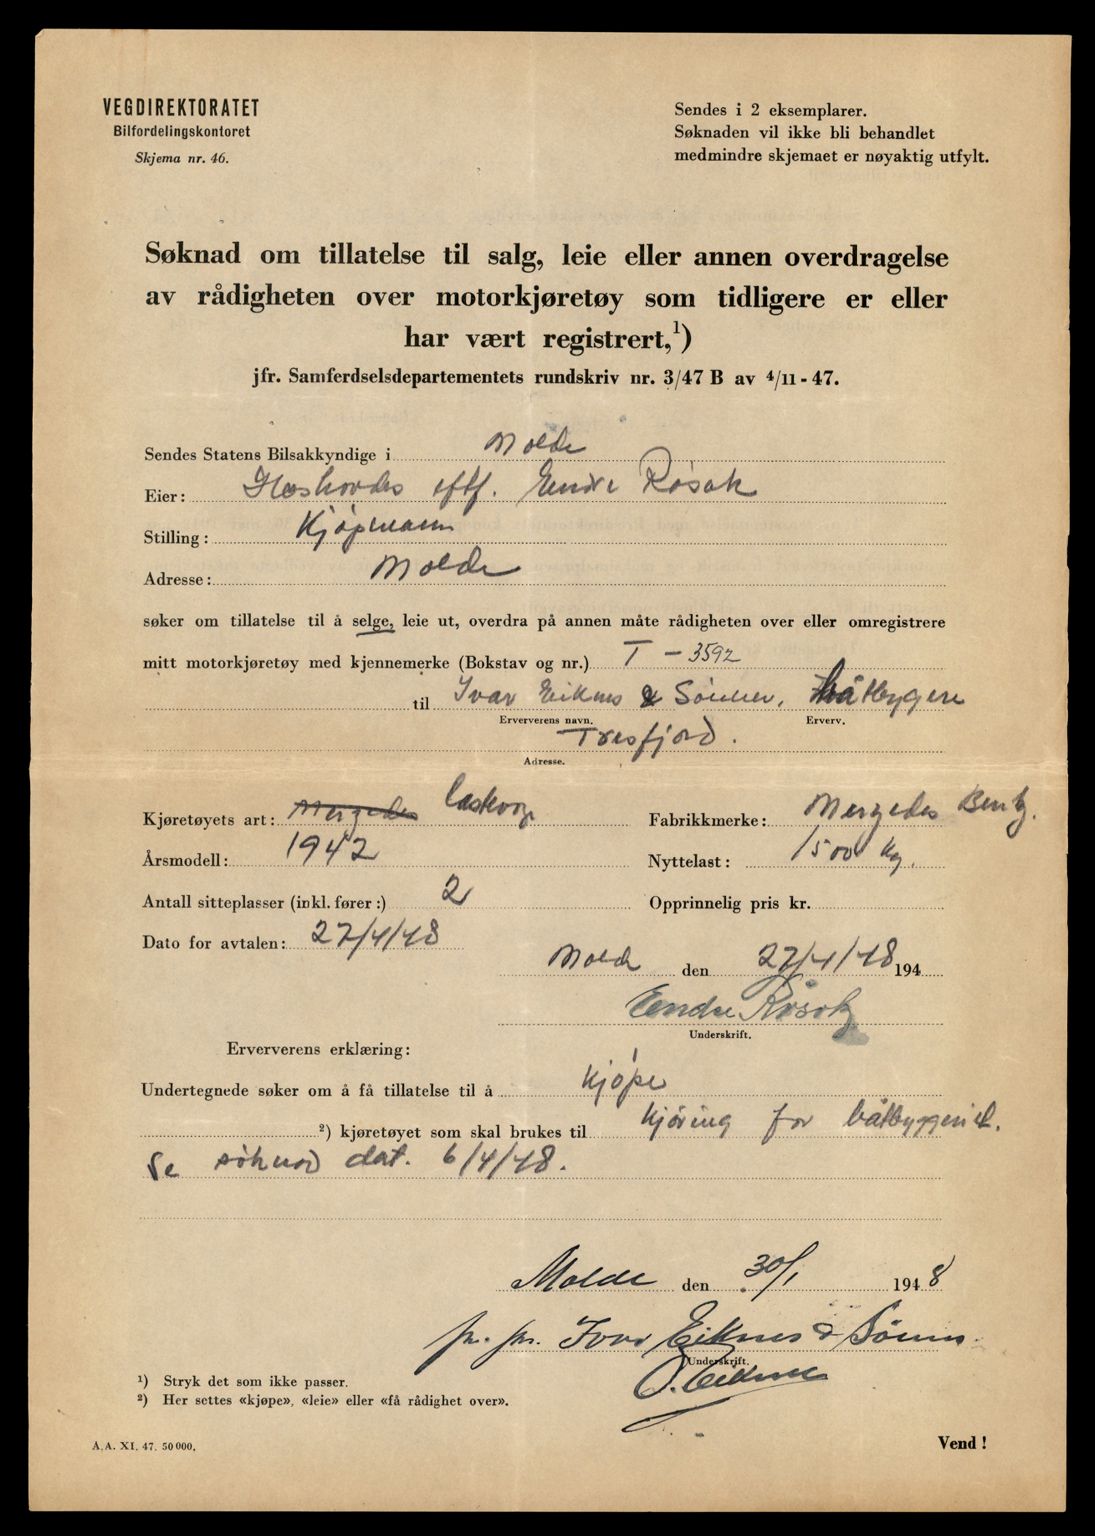 VEGDIREKTORATET
Bilfordelingskontoret
Skjema nr. 46.
Sendes i 2 eksemplarer.
Søknaden vil ikke bli behandlet
medmindre skjemaet er nøyaktig utfylt.
Søknad om tillatelse til salg, leie eller annen overdragelse
av rådigheten over motorkjøretøy som tidligere er eller
har vært registrert,¹)
jfr. Samferdselsdepartementets rundskriv nr. 3/47 B av 4/11 - 47.
Sendes Statens Bilsakkyndige i Molde
Eier: eftf. Endre Røsok
Stilling: Kjøpmann
Adresse: Molde
søker om tillatelse til å selge, leie ut, overdra på annen måte rådigheten over eller omregistrere
mitt motorkjøretøy med kjennemerke (Bokstav og nr.) T - 3592
til Ivar Eiknes & Sønner, båtbyggere
Erververens navn. Erverv.
Tresfjord.
Adresse.
Kjøretøyets art: Mergedes lastevogn
Fabrikkmerke: Mergedes Bentz.
Årsmodell: 1942
Nyttelast: 1500 kg.
Antall sitteplasser (inkl. fører:) 2
Opprinnelig pris kr.
Dato for avtalen: 27/4/48
Molde den 27/4/48 194
Endre Røsok
Underskrift.
Erververens erklæring:
Undertegnede søker om å få tillatelse til å kjøpe
²) kjøretøyet som skal brukes til kjøring for båtbyggeriet.
Se søknad dat. 6/4/48.
Molde den 30/1 1948
pr. pr. Ivar Eiknes & Sønner
Underskrift.
O. Eiknes
¹) Stryk det som ikke passer.
²) Her settes «kjøpe», «leie» eller «få rådighet over».
A.A. XI. 47. 50 000.
Vend!